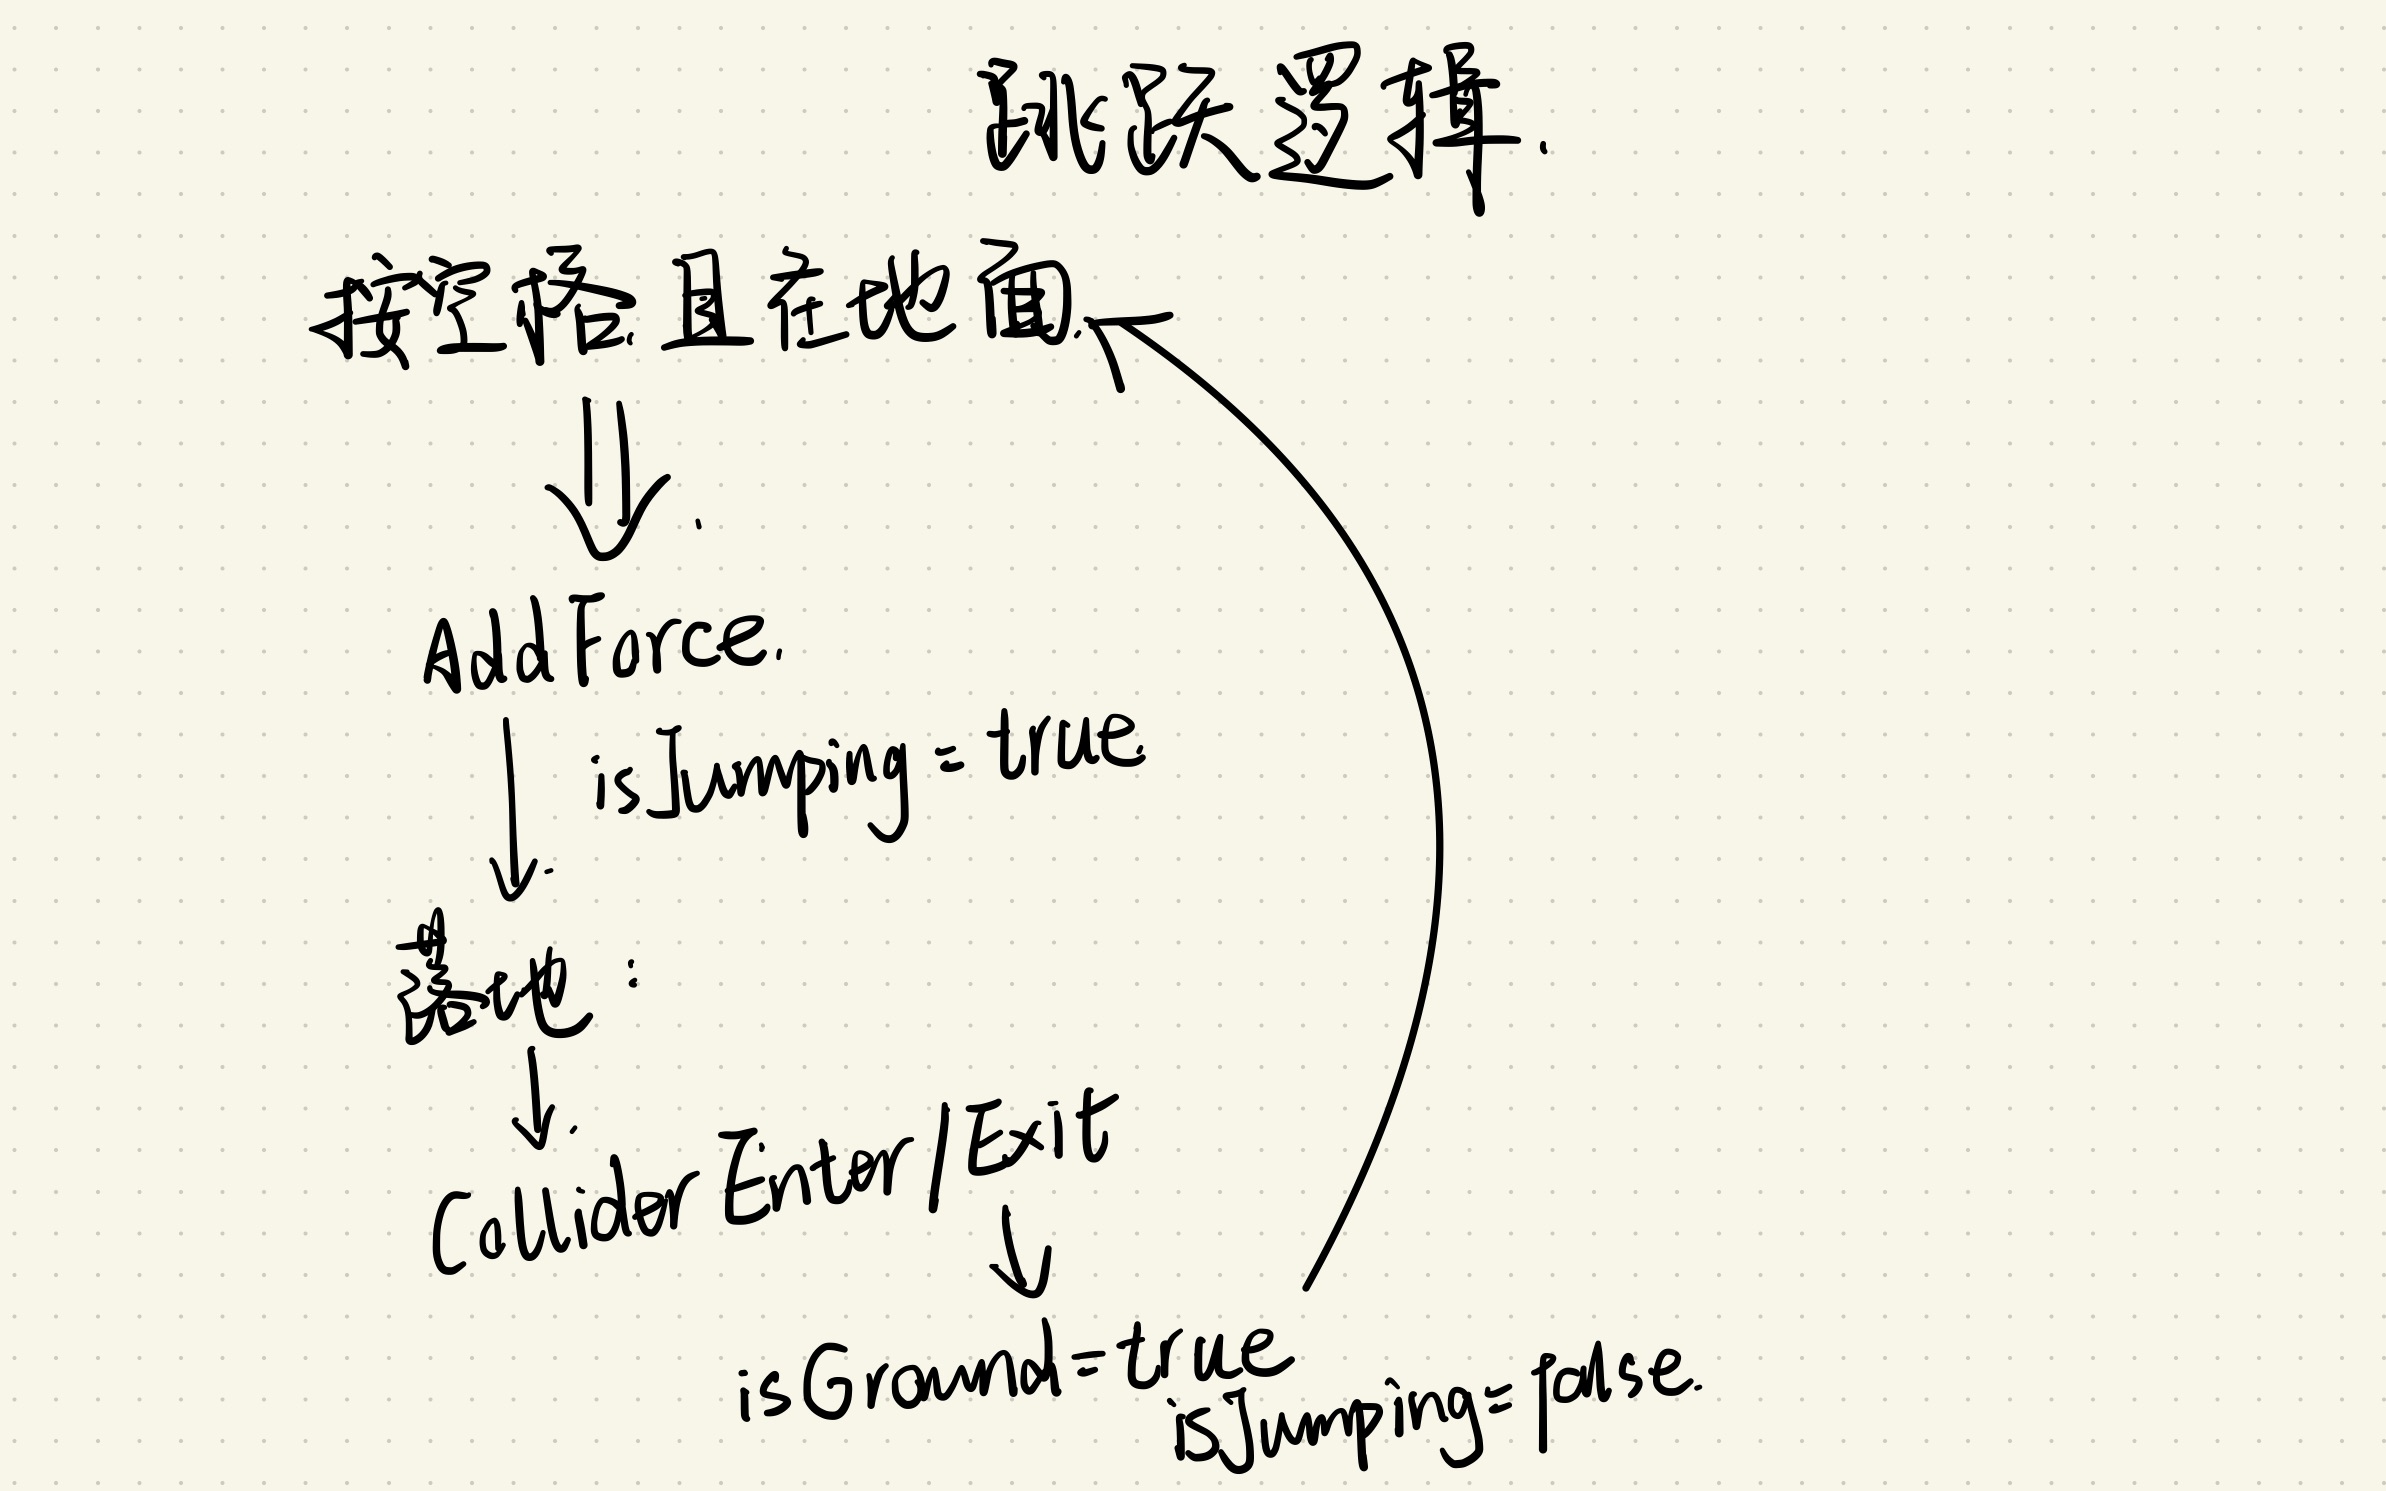 跳跃逻辑.
按空格.且在地面.
AddForce.
isJumping=true.
落地:
Collider Enter/Exit
isGround=true
isJumping=false.